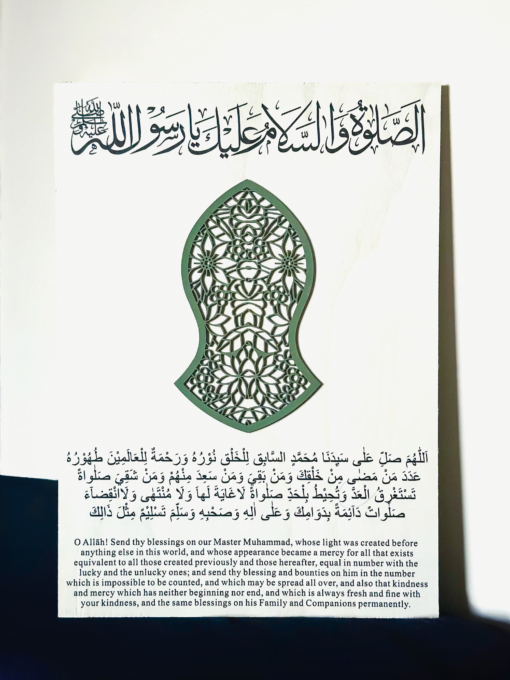 الصَّلٰوةُ وَالسَّلَامُ عَلَيْكَ يَا رَسُوْلَ اللّٰهِ ﷺ
اَللّٰهُمَّ صَلِّ عَلٰى سَيِّدِنَا مُحَمَّدٍ السَّابِقِ لِلْخَلْقِ نُوْرُهُ وَرَحْمَةٌ لِلْعَالَمِيْنَ ظُهُوْرُهُ
عَدَدَ مَنْ مَضٰى مِنْ خَلْقِكَ وَمَنْ بَقِيَ وَمَنْ سَعِدَ مِنْهُمْ وَمَنْ شَقِيَ صَلٰواةً
تَسْتَغْرِقُ الْعَدَّ وَتُحِيْطُ بِلْحَدِّ صَلٰواةً لَاغَايَةَ لَهاَ وَلَا مُنْتَهٰى وَلَاانْقِضَآءَ
صَلٰواتٌ دَآئِمَةً بِدَوَامِكَ وَعَلٰى اٰلِهِ وَصَحْبِهِ وَسَلِّمْ تَسْلِيْمٌ مِثْلَ ذَالِكَ
O Allāh! Send thy blessings on our Master Muhammad, whose light was created before
anything else in this world, and whose appearance became a mercy for all that exists
equivalent to all those created previously and those hereafter, equal in number with the
lucky and the unlucky ones; and send thy blessing and bounties on him in the number
which is impossible to be counted, and which may be spread all over, and also that kindness
and mercy which has neither beginning nor end, and which is always fresh and fine with
your kindness, and the same blessings on his Family and Companions permanently.